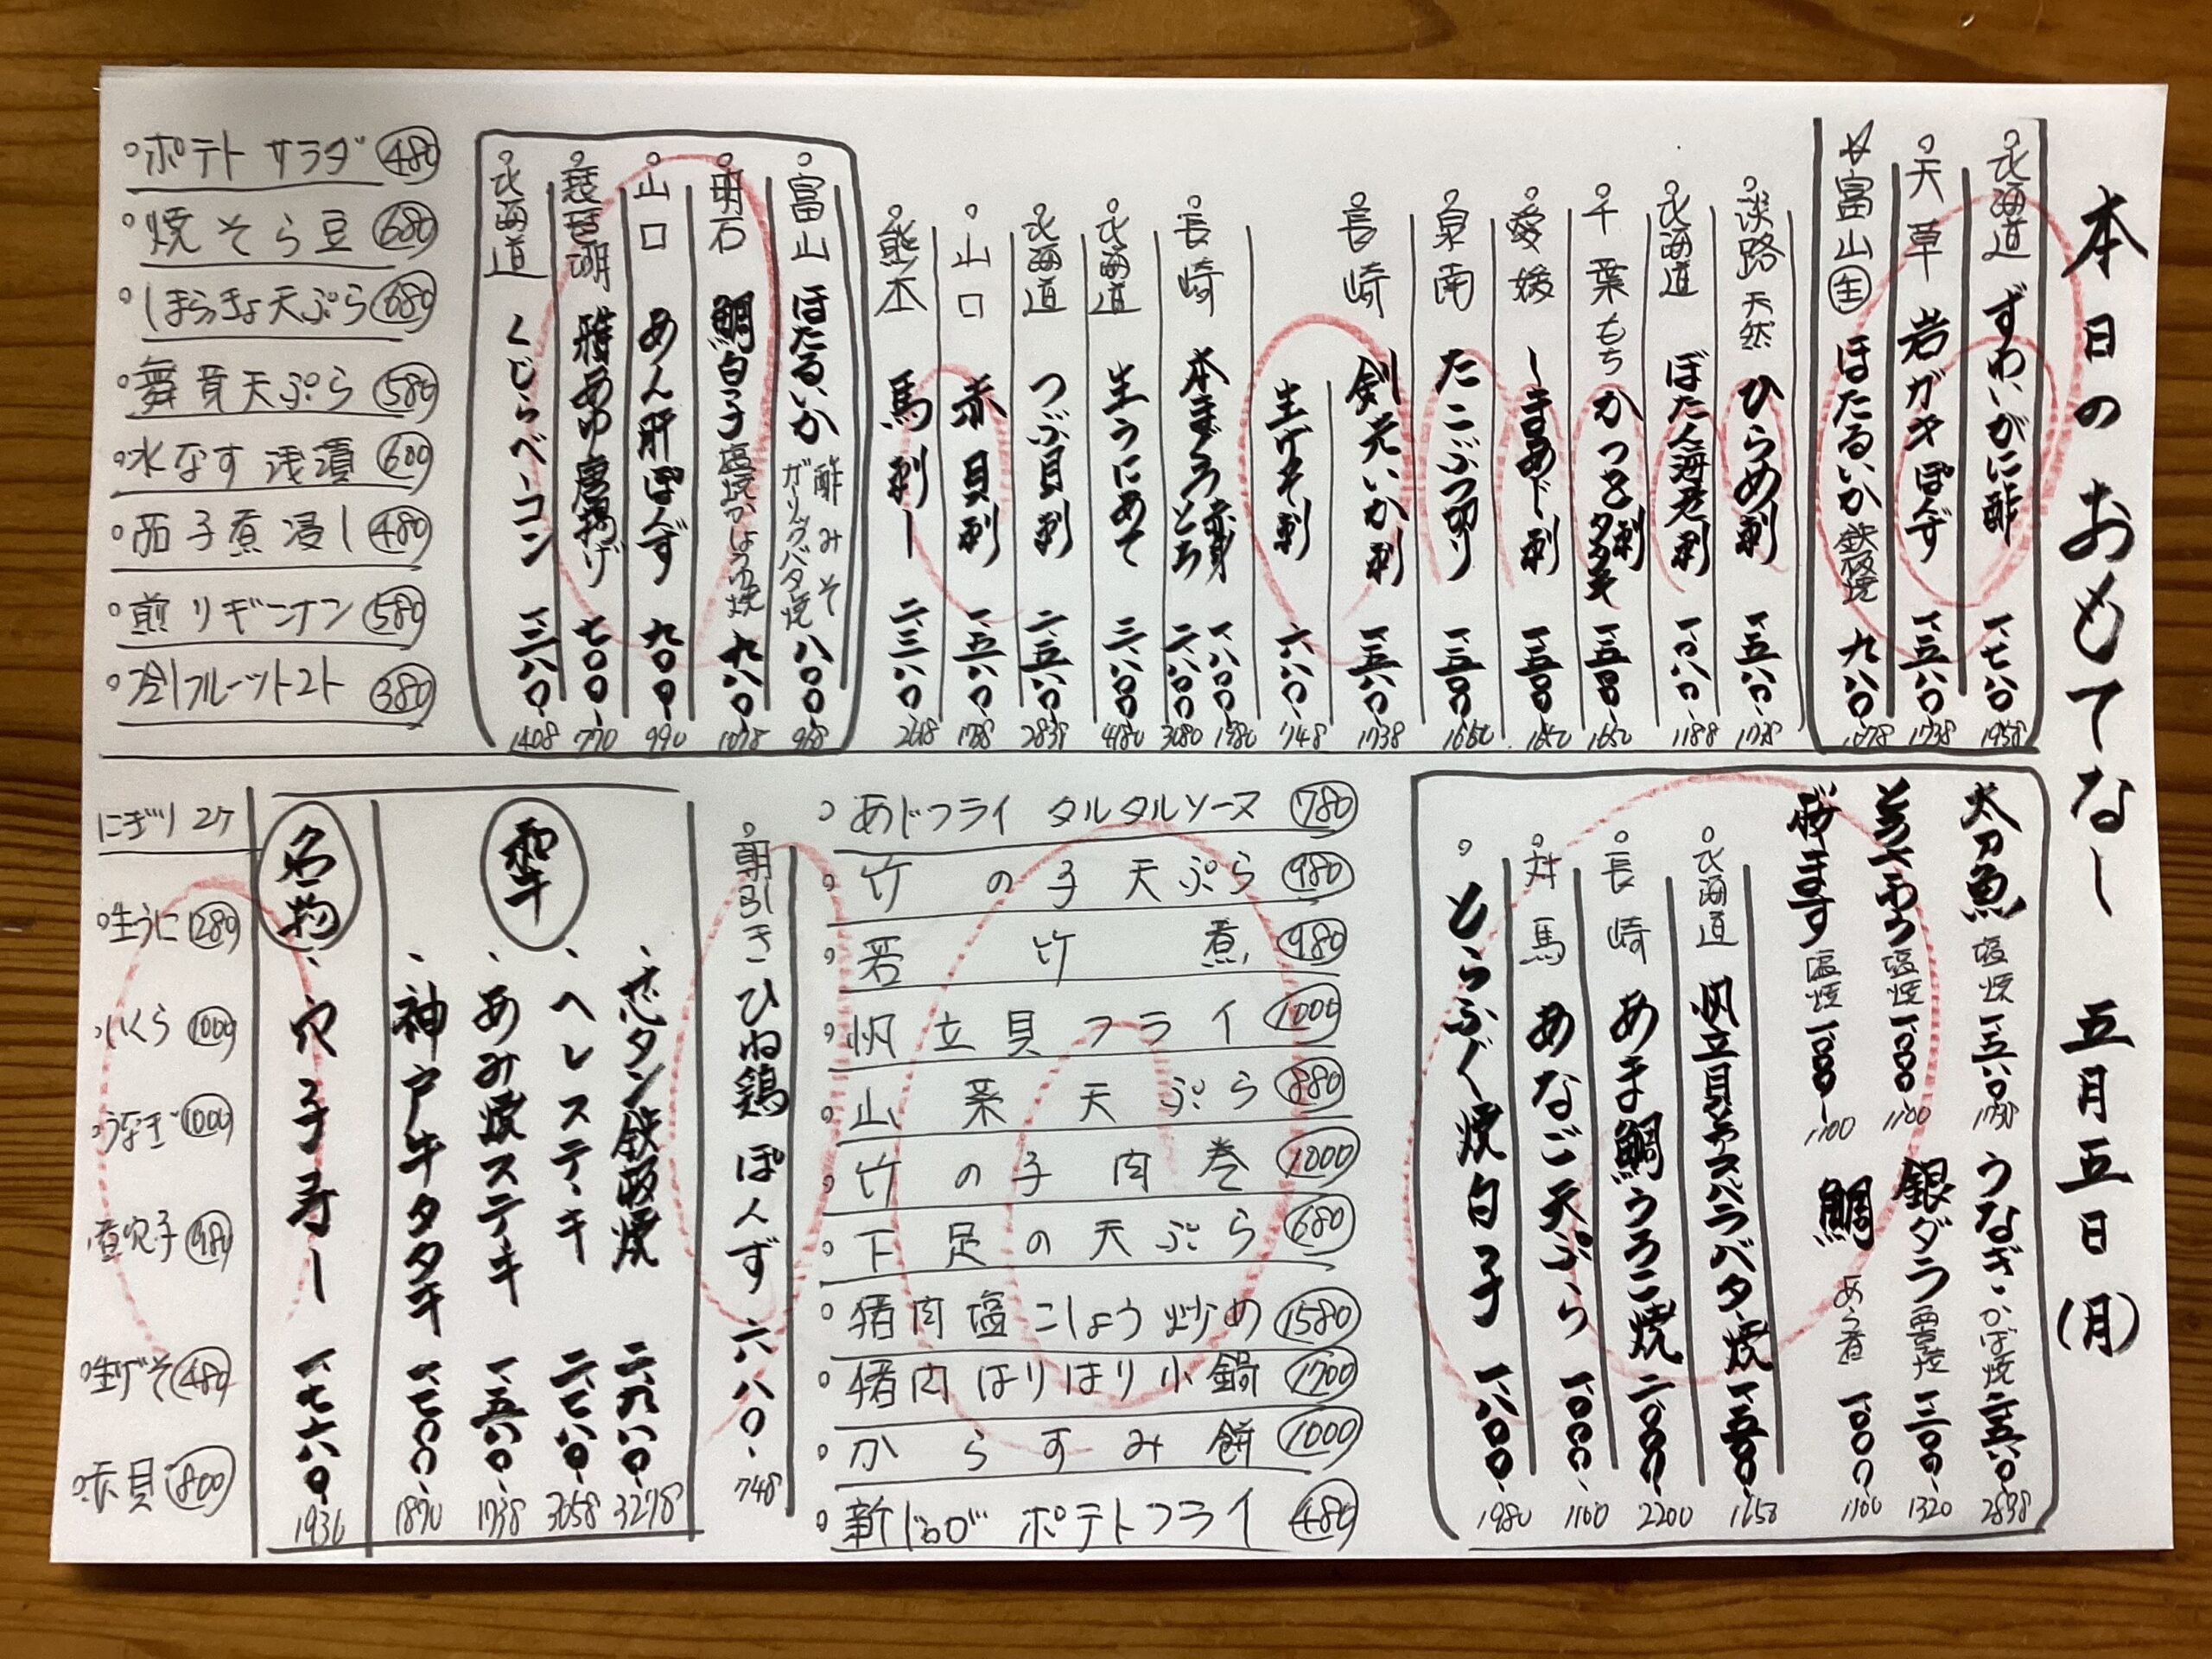 本日のおもてなし 五月五日(月)
北海道 ずわいがに酢 一、七八〇、 1958
天草 岩ガキぽんず 一、五八〇、 1738
富山 生 ほたるいか 鉄板焼 九八〇、 1078
淡路 天然 ひらめ刺 一、五八〇、 1738
北海道 ぼたん海老刺 一、〇八〇、 1188
千葉 もちかつを 刺 タタキ 一、五〇〇、 1650
愛媛 しまあじ刺 一、五〇〇、 1650
泉南 たこぶつ切り 一、五〇〇、 1650
長崎 剣先いか刺 一、五八〇、 1738
生げそ刺 六八〇、 748
長崎 本まぐろ 赤身 一、八〇〇、 1980
とろ 二、八〇〇、 3080
北海道 生うにあて 三、八〇〇、 4180
北海道 つぶ貝刺 二、五八〇、 2838
山口 赤貝刺 一、五八〇、 1738
熊本 馬刺し 二、三八〇、 2618
富山 ほたるいか 酢みそ ガーリックバター焼 八八〇、 968
明石 鯛白子 塩焼かしょうゆ焼 九八〇、 1078
山口 あん肝ぽんず 九〇〇、 990
琵琶湖 稚あゆ唐揚げ 七〇〇、 770
北海道 くじらベーコン 一、二八〇、 1408
ポテトサラダ 480
焼そら豆 680
しまらっきょ天ぷら 680
舞茸天ぷら 580
水なす浅漬 600
茄子煮浸し 480
煎りギンナン 580
冷しフルーツトマト 380
太刀魚 塩焼 一、五八〇、 1738
うなぎ かば焼 二、五八〇、 2838
塩焼 一、〇〇〇、 1100
銀ダラ 西京焼 一、二〇〇、 1320
桜ます 塩焼 一、〇〇〇、 1100
鯛 あら煮 一、〇〇〇、 1100
北海道 帆立貝アスパラバター焼 一、五〇〇、 1650
長崎 あま鯛うろこ焼 二、〇〇〇、 2200
対馬 あなご天ぷら 一、〇〇〇、 1100
とらふぐ焼白子 一、八〇〇、 1980
あじフライ タルタルソース 780
竹の子天ぷら 980
若竹煮 980
帆立貝フライ 1000
山菜天ぷら 880
竹の子肉巻 1000
下足の天ぷら 680
猪肉塩こしょう炒め 1580
猪肉はりはり小鍋 1700
からすみ餅 1000
新じゃが ポテトフライ 480
朝引き ひね鶏ぽんず 六八〇、 748
和牛
芯タン鉄板焼 二、九八〇、 3278
ヘレステーキ 二、七八〇、 3058
あみ焼ステーキ 一、五八〇、 1738
神戸牛タタキ 一、七〇〇、 1870
名物 穴子寿し 一、七六〇、 1936
にぎり 2ケ
生うに 1280
いくら 1000
うなぎ 1000
煮穴子 980
生げそ 480
赤貝 800